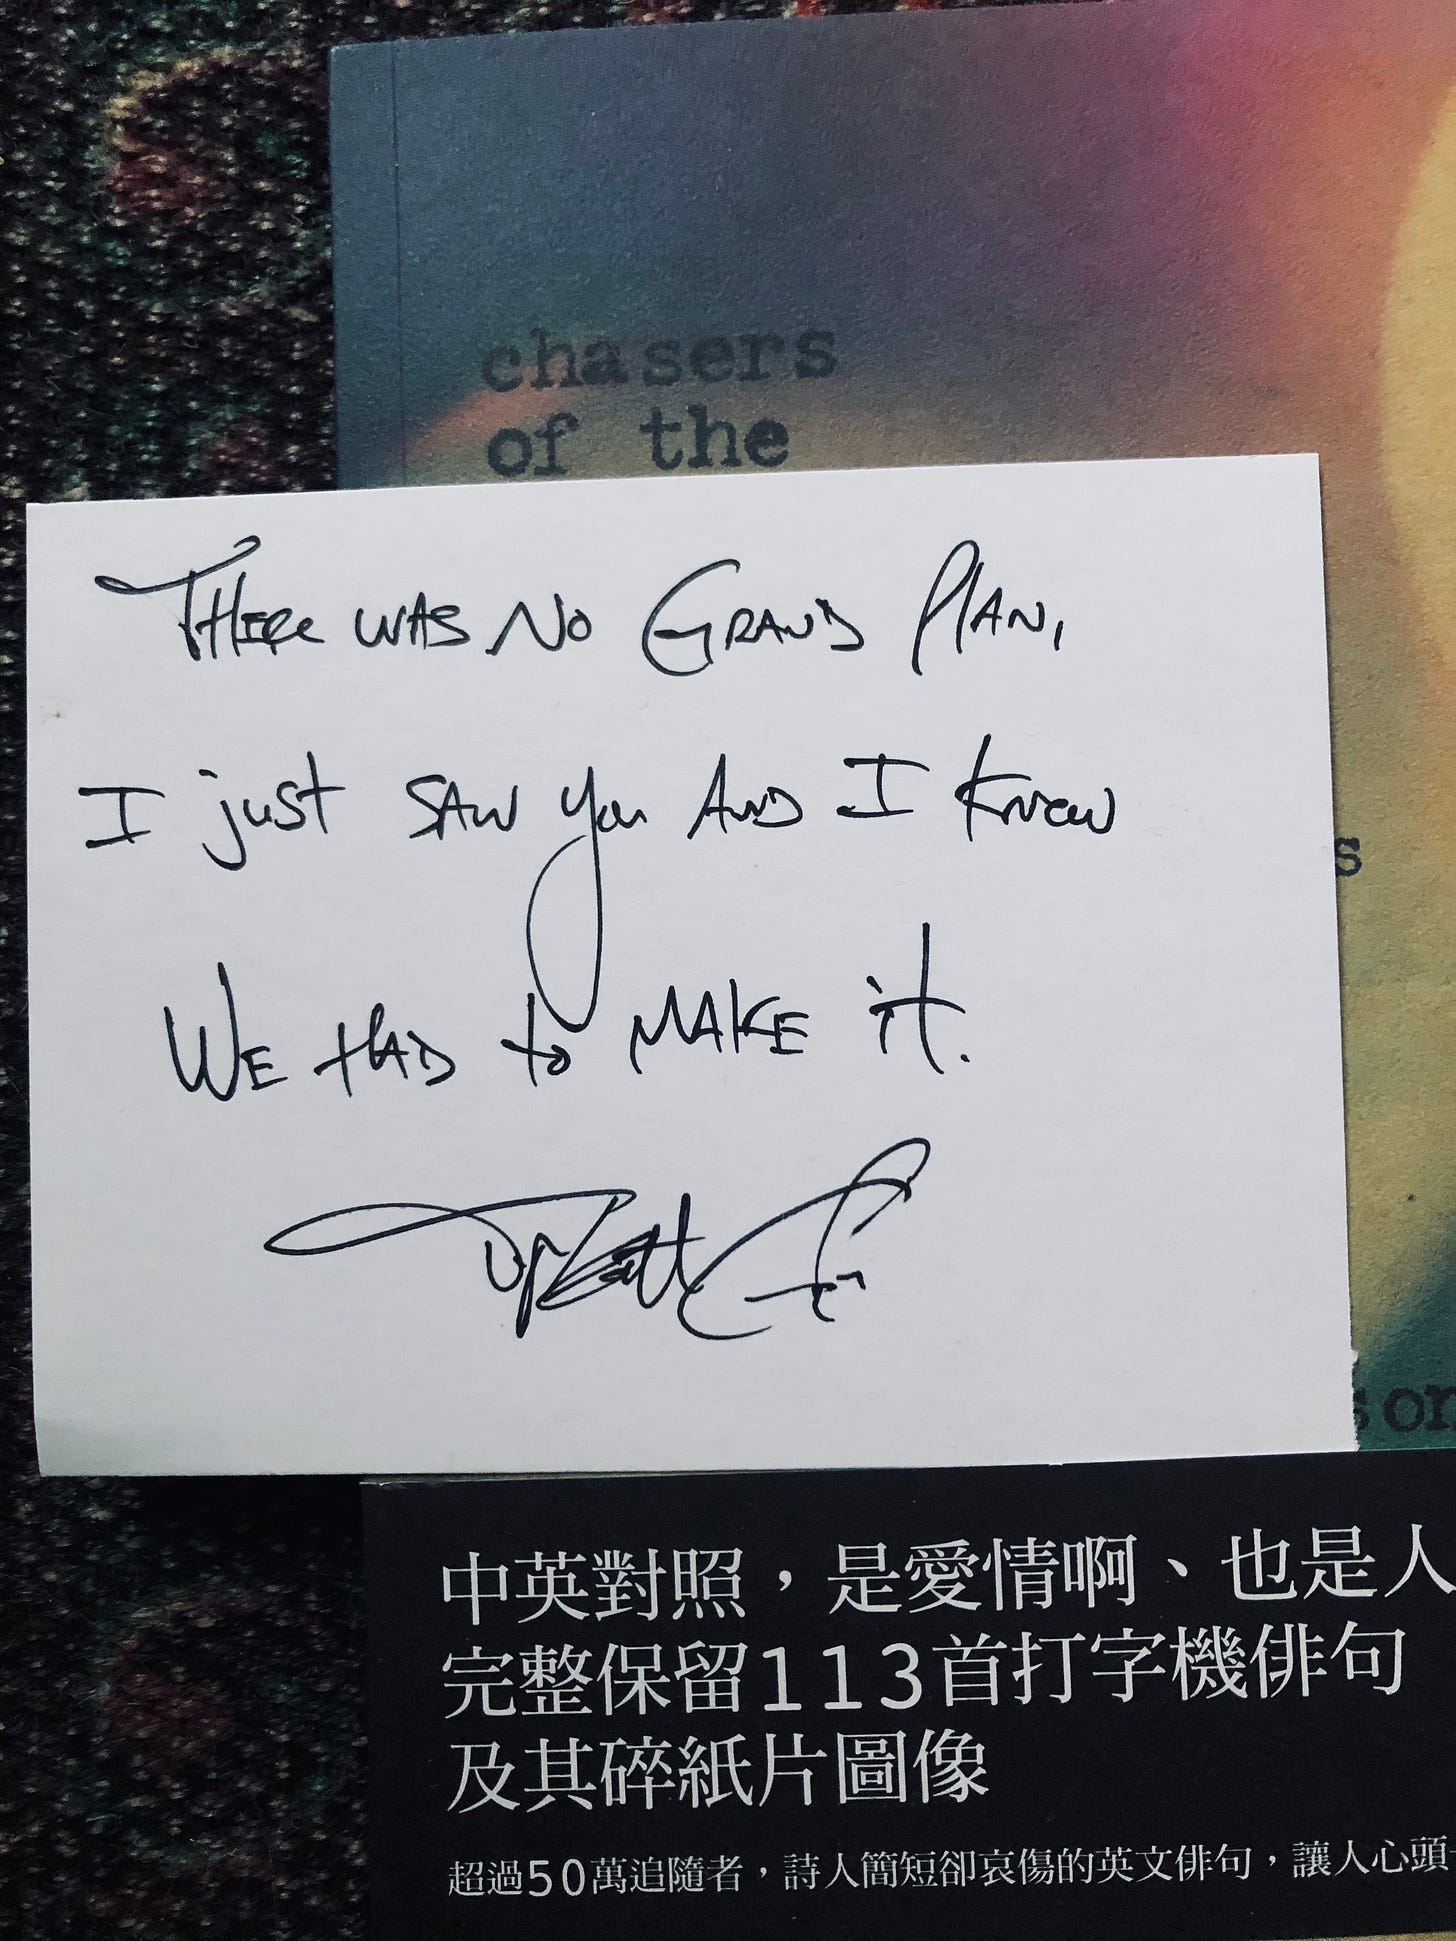 chasers
of the
There was no Grand Plan,
I just saw you and I knew
We had to make it.
s
son
中英對照，是愛情啊、也是人
完整保留113首打字機俳句
及其碎紙片圖像
超過50萬追隨者，詩人簡短卻哀傷的英文俳句，讓人心頭